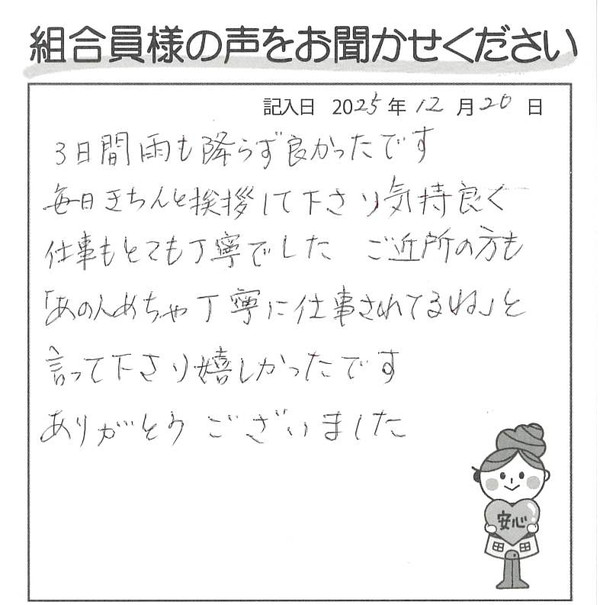 組合員様の声をお聞かせください
記入日 2025年12月20日
3日間雨も降らず良かったです
毎日きちんと挨拶して下さり気持良く
仕事もとても丁寧でした ご近所の方も
「あの人めちゃ丁寧に仕事されてるね」と
言って下さり嬉しかったです
ありがとうございました
安心